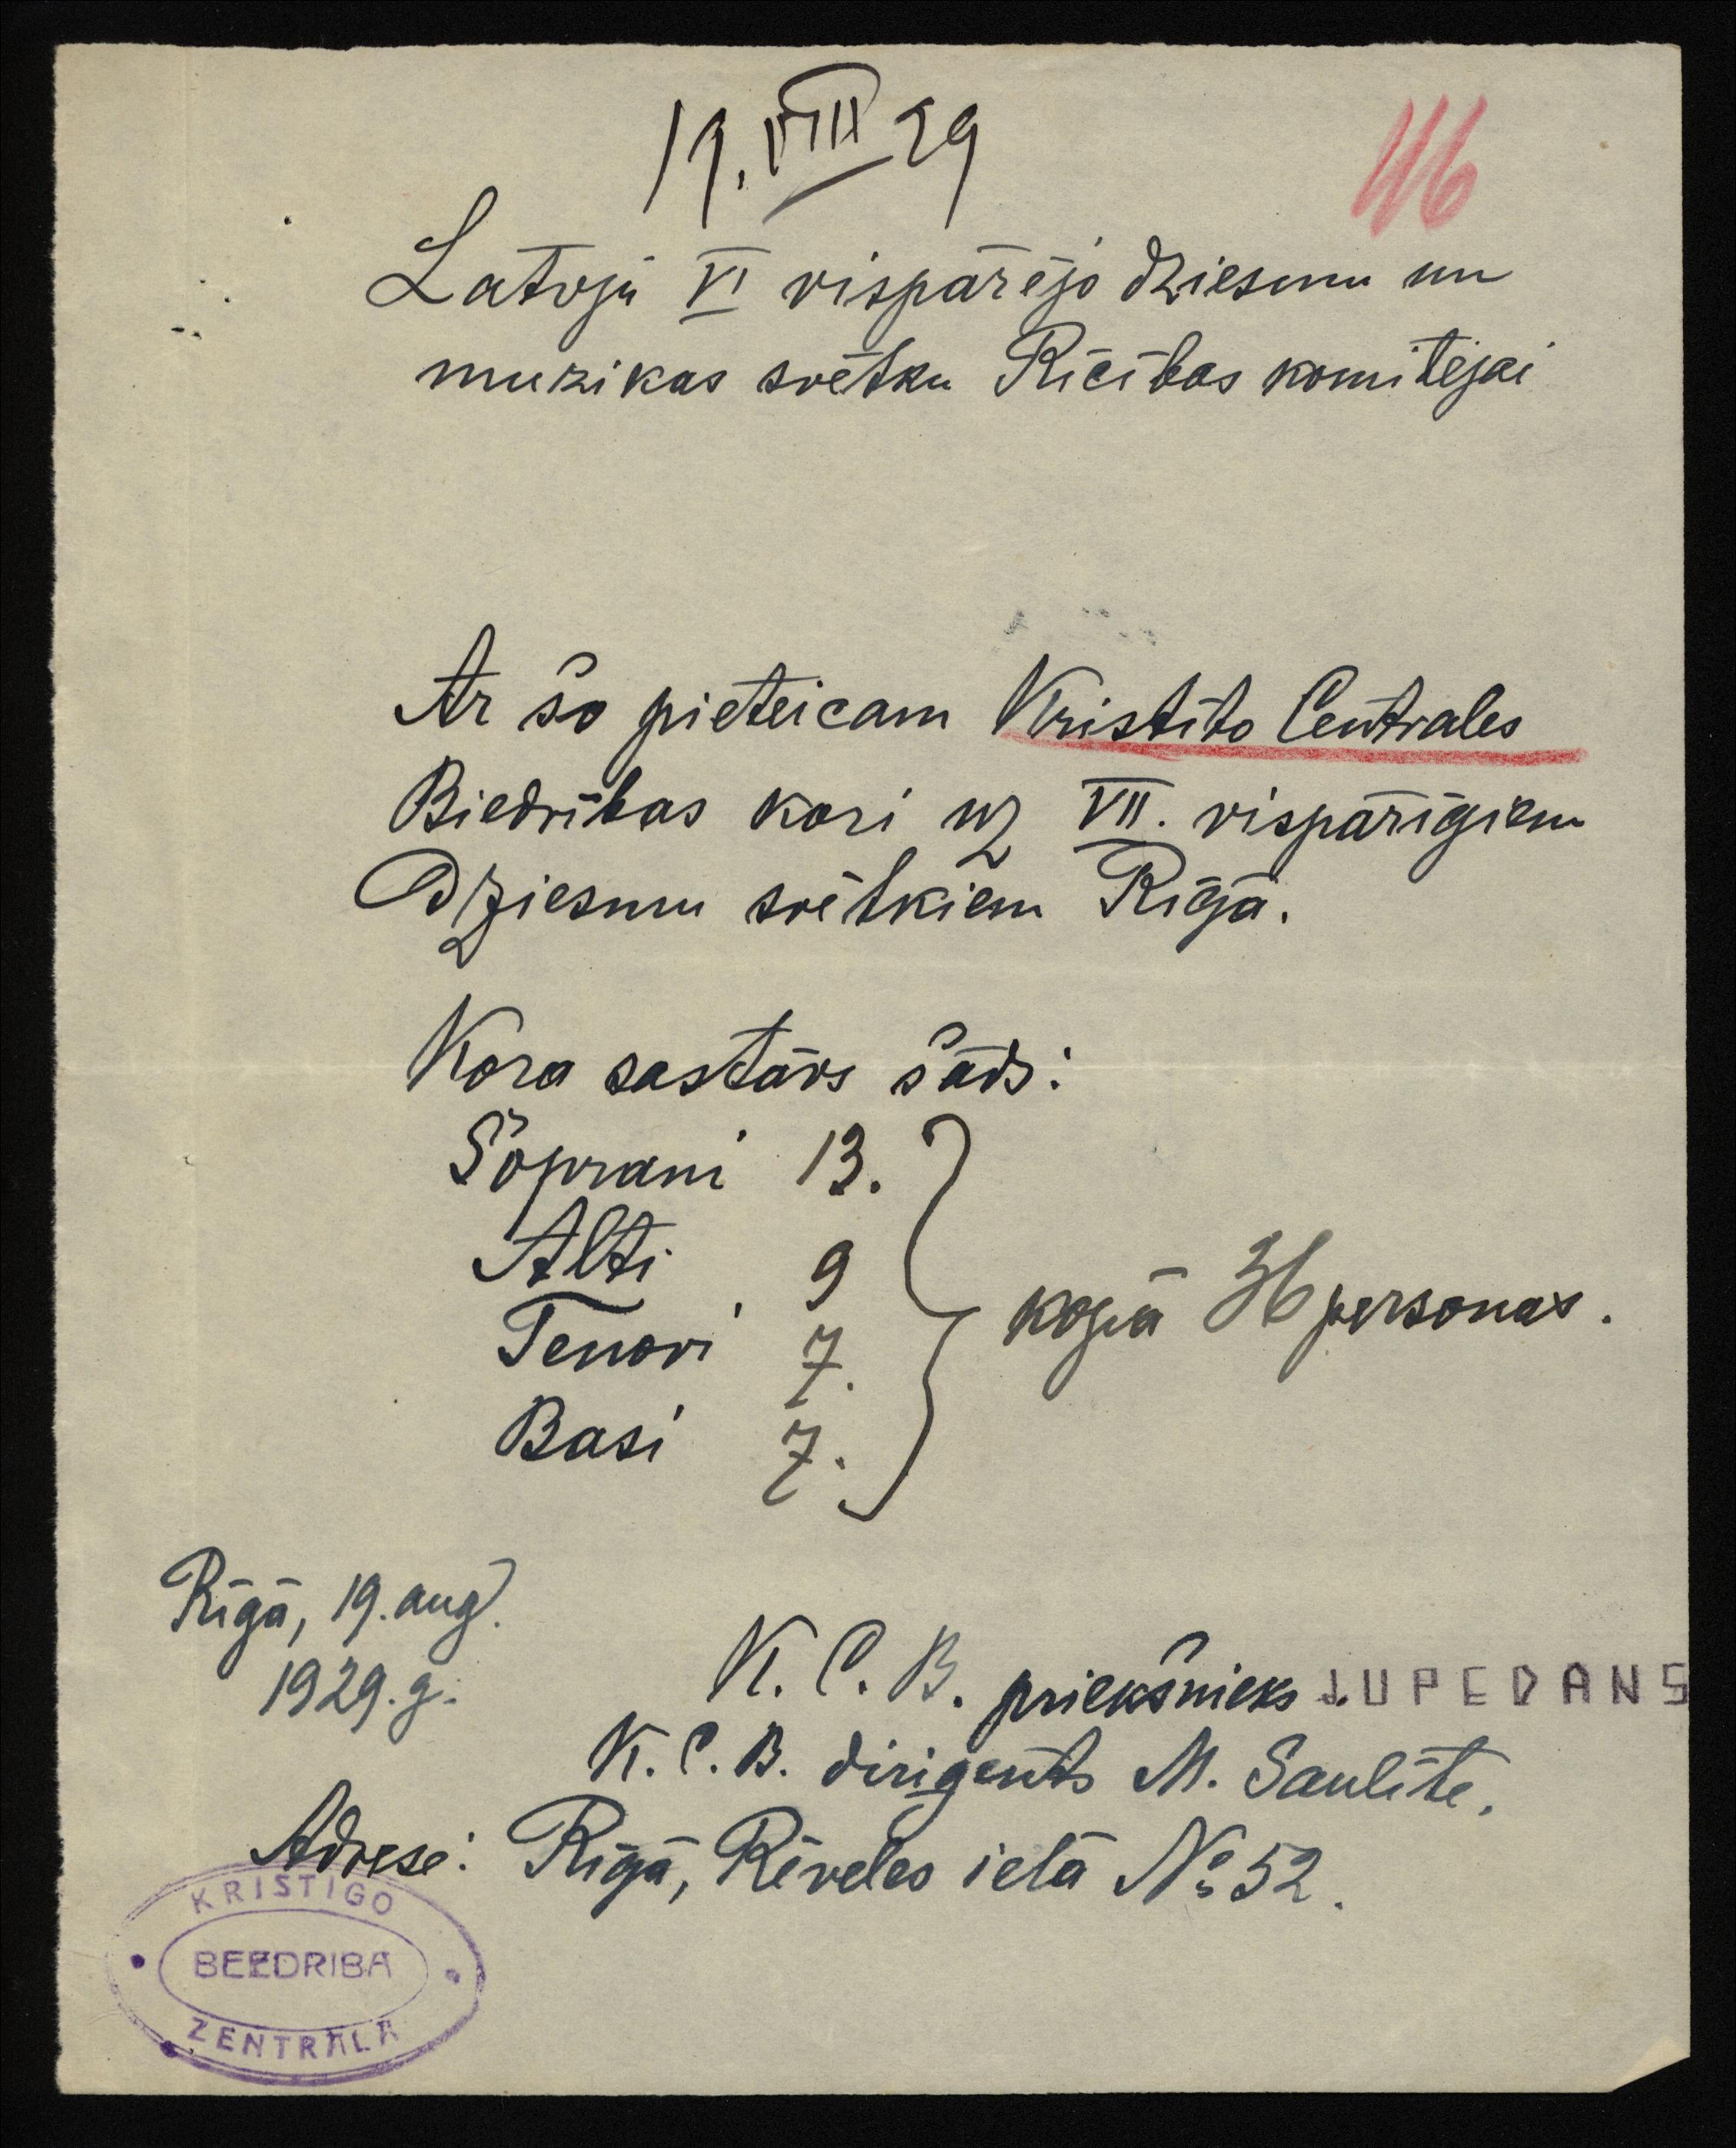 19.VIII 29
46
Latvju VI vispārējo dziesmu un
muzikas svētku Rīcības komitejai
Ar šo pieteicam Kristīto Centrales
Biedrības kori uz VII. vispārīgiem
Dziesmu svētkiem Rīgā.
Kora sastāvs šāds:
Soprani 13.
Alti 9
Tenori 7.
Basi 7.
kopā 36 personas.
Rīgā, 19. aug.
1929. g.
K. C. B. priekšnieks J. UPEDANS
K. C. B. dirigents M. Saulīte.
Adrese: Rīgā, Rēveles ielā № 52.
KRISTIGO
BEEDRIBA
ZENTRALA